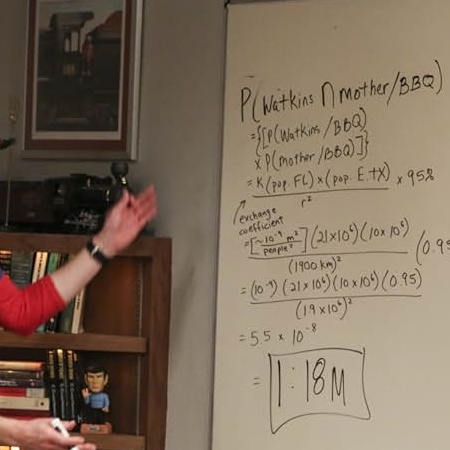 P(Watkins ∩ mother/BBQ)
={[P(Watkins/BBQ)
x P(mother/BBQ)]}
= K(pop. FL)x(pop. E.tX) x 95%
r²
exchange
coefficient
=[~10⁻⁹ m²/people²](21x10⁶)(10x10⁶)(0.95
(1900 km)²
=(10⁻⁹)(21x10⁶)(10x10⁶)(0.95)
(1.9x10⁶)²
= 5.5 x 10⁻⁸
= 1:18M